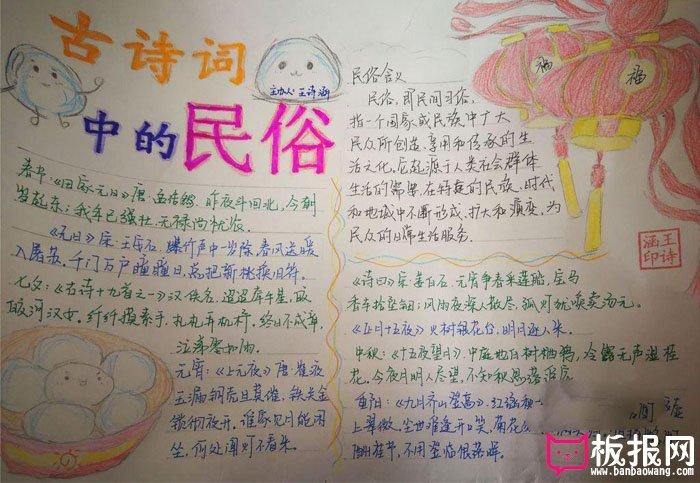 古诗词
中的民俗
主办人:王诗涵
民俗含义
民俗,即民间习俗,
指一个国家或民族中广大
民众所创造、享用和传承的生
活文化,它起源于人类社会群体
生活的需要,在特定的民族、时代
和地域中不断形成、扩大和演变,为
民众的日常生活服务。
福
福
王诗
涵印
春节:《田家元日》唐·孟浩然 昨夜斗回北,今朝
岁起东;我年已强壮,无禄尚忧农。
《元日》宋·王安石 爆竹声中一岁除,春风送暖
入屠苏。千门万户曈曈日,总把新桃换旧符。
七夕:《古诗十九首之一》汉·佚名,迢迢牵牛星,皎
皎河汉女。纤纤擢素手,札札弄机杼。终日不成章,
泣涕零如雨。
元宵:《上元夜》唐·崔液
玉漏铜壶且莫催,铁关金
锁彻夜开,谁家见月能闲
坐,何处闻灯不看来。
《诗曰》宋·姜白石,元宵争看采莲船,宝马
香车拾坠钿;风雨夜深人散尽,孤灯犹唤卖汤元。
《正月十五夜》火树银花合,明月逐人来。
中秋:《十五夜望月》,中庭地白树栖鸦,冷露无声湿桂
花,今夜月明人尽望,不知秋思落谁家
重阳:《九月齐山登高》,江涵秋
上翠微,尘世难逢开口笑,菊花
酬佳节,不用登临恨落晖。
板报网
www.banbaowang.com